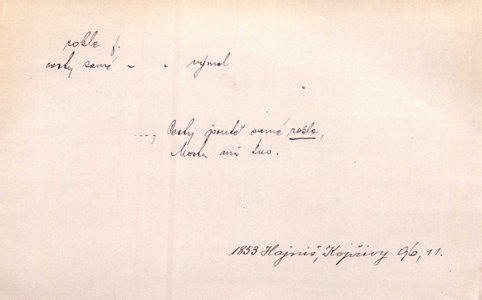 rokle f.
cesty samé - - výmol
..., Cesty pouté samé rokle,
Mostu ani kus.
1853 Hajniš, Kopřivy 9/6, 11.